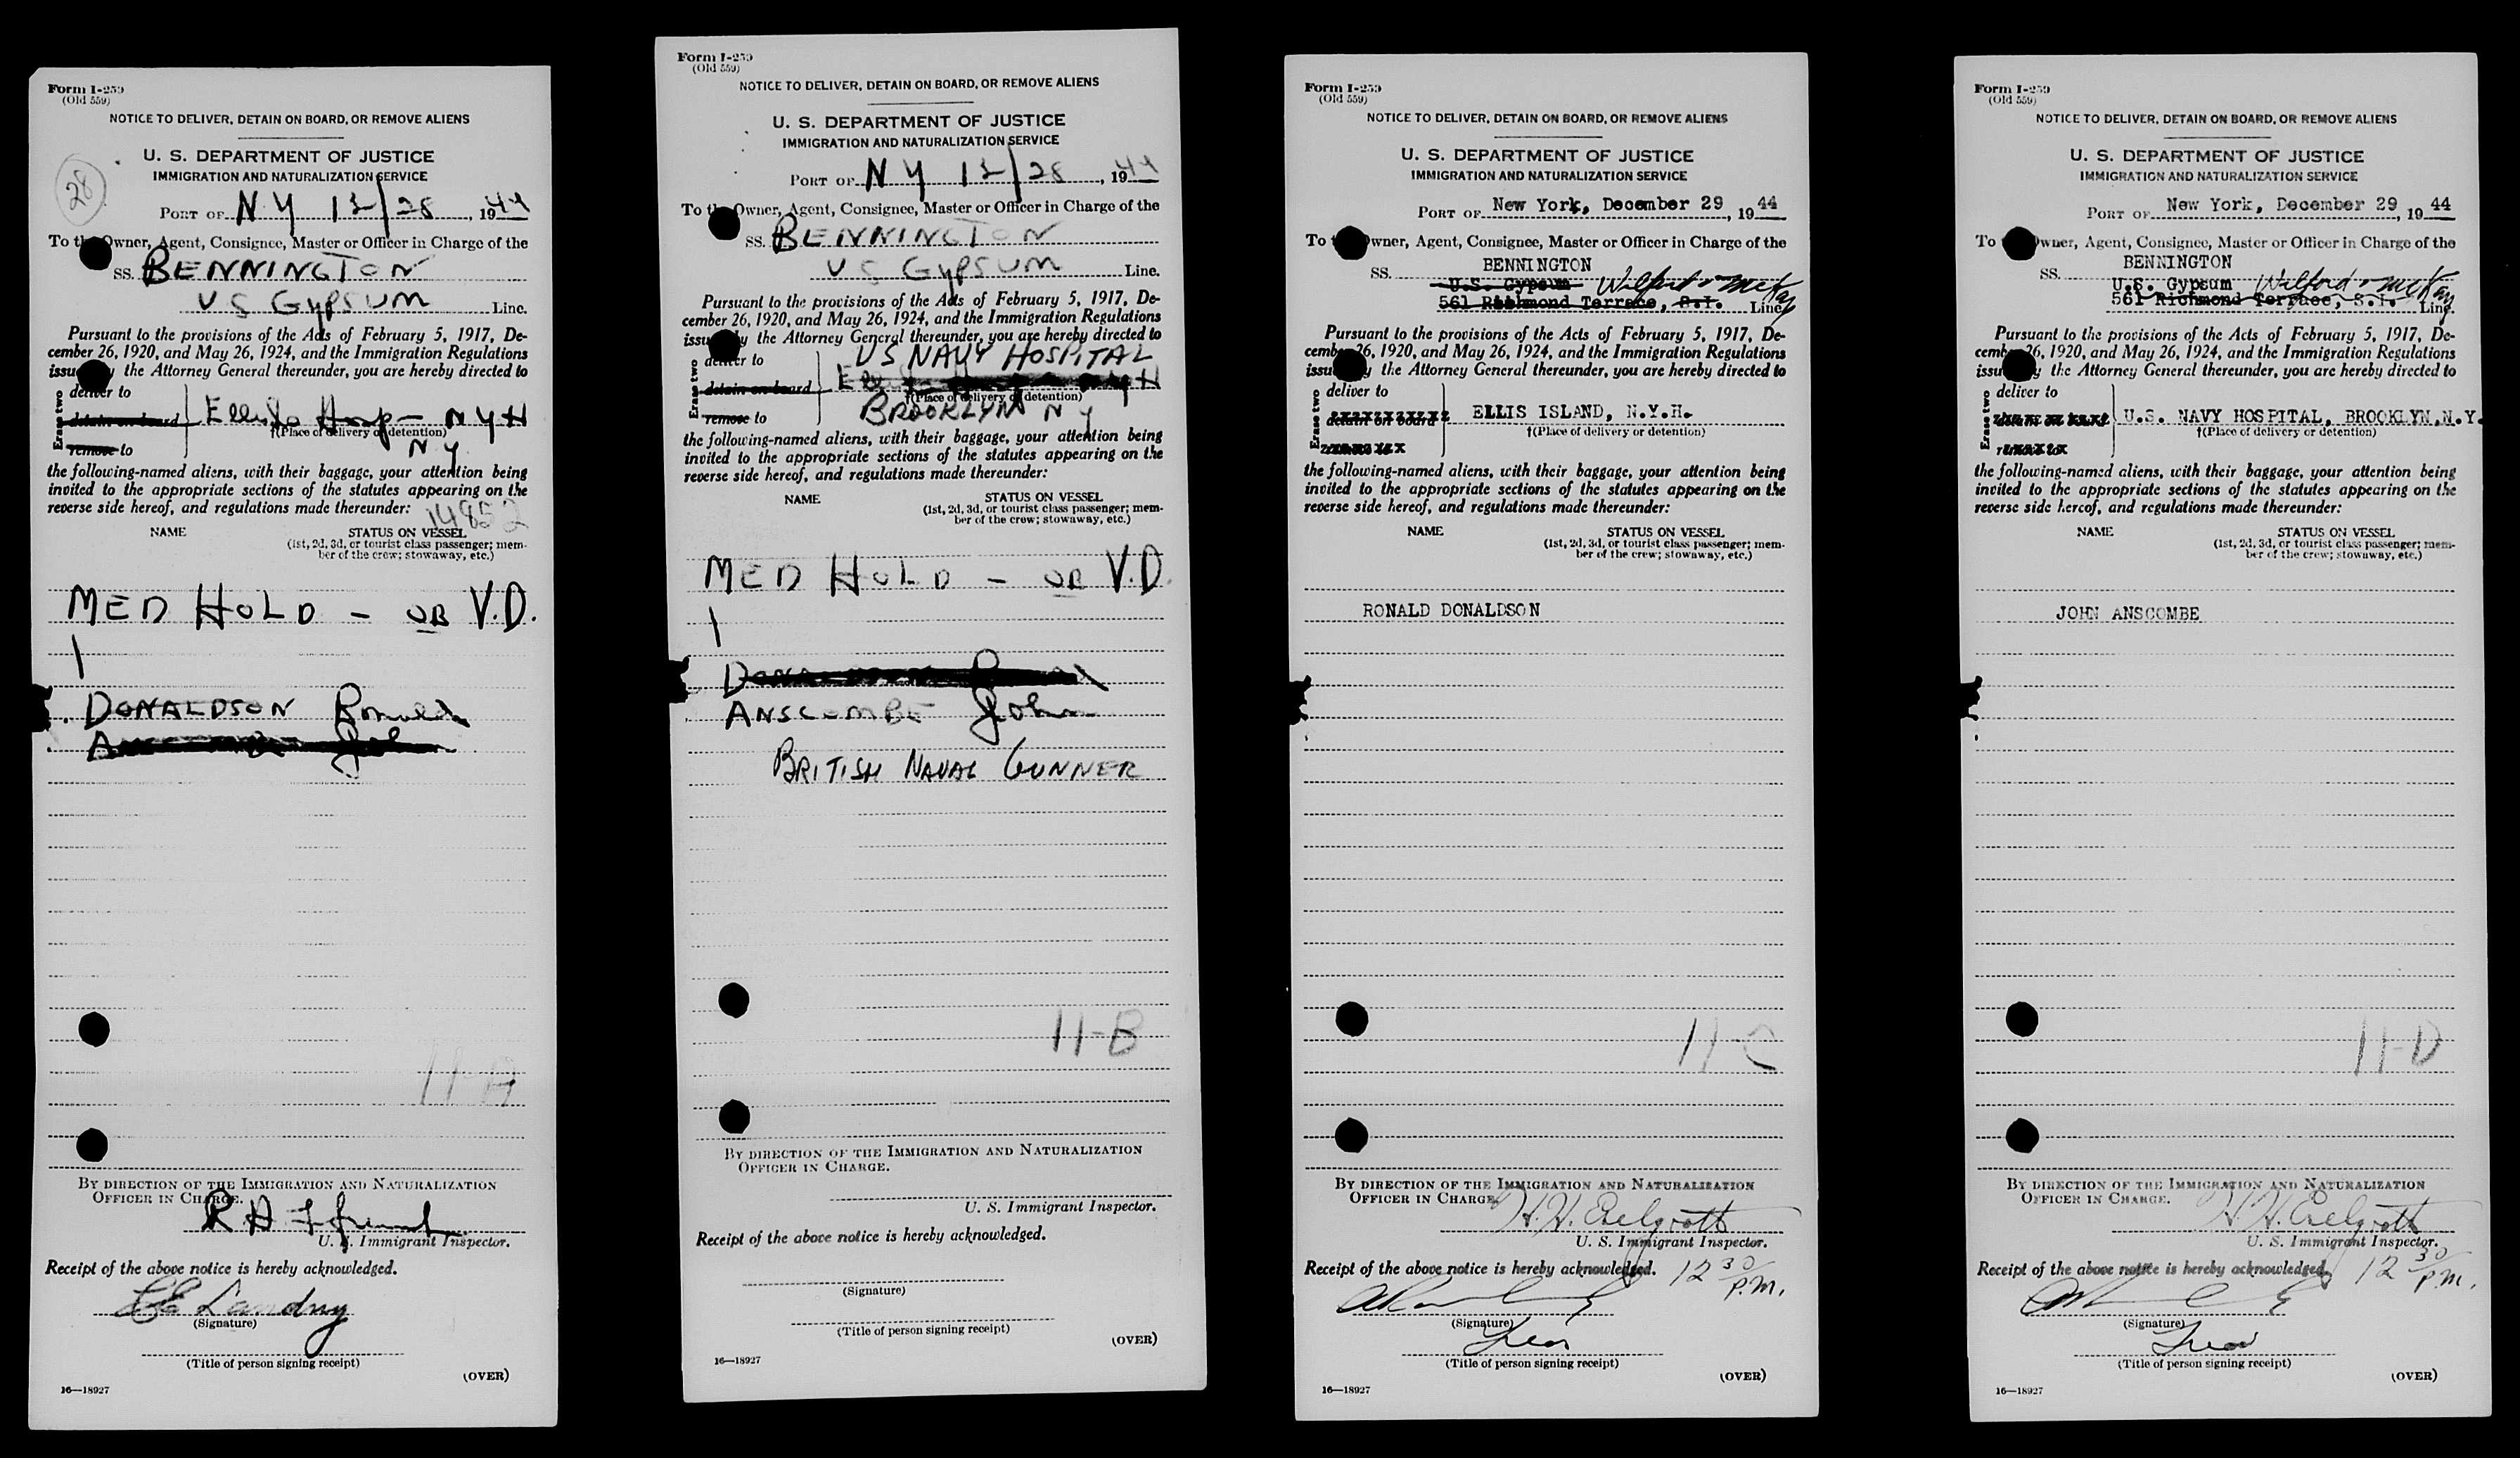 Form I-259
(Old 559)
NOTICE TO DELIVER, DETAIN ON BOARD, OR REMOVE ALIENS
U. S. DEPARTMENT OF JUSTICE
IMMIGRATION AND NATURALIZATION SERVICE
28
PORT OF N Y 12/28, 1944
To the Owner, Agent, Consignee, Master or Officer in Charge of the
SS. BENNINGTON
US GYPSUM Line.
Pursuant to the provisions of the Acts of February 5, 1917, De-
cember 26, 1920, and May 26, 1924, and the Immigration Regulations
issu y the Attorney General thereunder, you are hereby directed to
Erase two
deliver to
detain on board Ellis NYH
†(Place of delivery or detention)
remove to NY
the following-named aliens, with their baggage, your attention being
invited to the appropriate sections of the statutes appearing on the
reverse side hereof, and regulations made thereunder:
14852
NAME STATUS ON VESSEL
(1st, 2d, 3d, or tourist class passenger; mem-
ber of the crew; stowaway, etc.)
MED HOLD - OB V.D.
1
DONALDSON Ronald
John
11-A
BY DIRECTION OF THE IMMIGRATION AND NATURALIZATION
OFFICER IN CHARGE.
R H
U. S. Immigrant Inspector.
Receipt of the above notice is hereby acknowledged.
Landry
(Signature)
(Title of person signing receipt)
(OVER)
16—18927
Form I-259
(Old 559)
NOTICE TO DELIVER, DETAIN ON BOARD, OR REMOVE ALIENS
U. S. DEPARTMENT OF JUSTICE
IMMIGRATION AND NATURALIZATION SERVICE
PORT OF N Y 12/28, 1944
To the Owner, Agent, Consignee, Master or Officer in Charge of the
SS. BENNINGTON
US GYPSUM Line.
Pursuant to the provisions of the Acts of February 5, 1917, De-
cember 26, 1920, and May 26, 1924, and the Immigration Regulations
issu y the Attorney General thereunder, you are hereby directed to
Erase two
deliver to US NAVY HOSPITAL
detain on board
†(Place of delivery or detention)
remove to BROOKLYN N Y
the following-named aliens, with their baggage, your attention being
invited to the appropriate sections of the statutes appearing on the
reverse side hereof, and regulations made thereunder:
NAME STATUS ON VESSEL
(1st, 2d, 3d, or tourist class passenger; mem-
ber of the crew; stowaway, etc.)
MED HOLD - OB V.D.
1
ANSCOMBE John
BRITISH NAVAL GUNNER
11-B
BY DIRECTION OF THE IMMIGRATION AND NATURALIZATION
OFFICER IN CHARGE.
U. S. Immigrant Inspector.
Receipt of the above notice is hereby acknowledged.
(Signature)
(Title of person signing receipt)
(OVER)
16—18927
Form I-259
(Old 559)
NOTICE TO DELIVER, DETAIN ON BOARD, OR REMOVE ALIENS
U. S. DEPARTMENT OF JUSTICE
IMMIGRATION AND NATURALIZATION SERVICE
PORT OF New York, December 29, 1944
To wner, Agent, Consignee, Master or Officer in Charge of the
SS. BENNINGTON
U.S. Gypsum Wilford & McKay
561 Richmond Terrace, S.I. Line.
Pursuant to the provisions of the Acts of February 5, 1917, De-
cemb 26, 1920, and May 26, 1924, and the Immigration Regulations
issu y the Attorney General thereunder, you are hereby directed to
Erase two
deliver to
detain on board ELLIS ISLAND, N.Y.H.
†(Place of delivery or detention)
remove to
the following-named aliens, with their baggage, your attention being
invited to the appropriate sections of the statutes appearing on the
reverse side hereof, and regulations made thereunder:
NAME STATUS ON VESSEL
(1st, 2d, 3d, or tourist class passenger; mem-
ber of the crew; stowaway, etc.)
RONALD DONALDSON
11-C
BY DIRECTION OF THE IMMIGRATION AND NATURALIZATION
OFFICER IN CHARGE.
H. H.
U. S. Immigrant Inspector.
Receipt of the above notice is hereby acknowledged. 12 30 P.M.
(Signature)
(Title of person signing receipt)
(OVER)
16—18927
Form I-259
(Old 559)
NOTICE TO DELIVER, DETAIN ON BOARD, OR REMOVE ALIENS
U. S. DEPARTMENT OF JUSTICE
IMMIGRATION AND NATURALIZATION SERVICE
PORT OF New York, December 29, 1944
To wner, Agent, Consignee, Master or Officer in Charge of the
SS. BENNINGTON
U.S. Gypsum Wilford & McKay
561 Richmond Terrace, S.I. Line.
Pursuant to the provisions of the Acts of February 5, 1917, De-
cemb 26, 1920, and May 26, 1924, and the Immigration Regulations
issu y the Attorney General thereunder, you are hereby directed to
Erase two
deliver to
detain on board U.S. NAVY HOSPITAL, BROOKLYN, N.Y.
†(Place of delivery or detention)
remove to
the following-named aliens, with their baggage, your attention being
invited to the appropriate sections of the statutes appearing on the
reverse side hereof, and regulations made thereunder:
NAME STATUS ON VESSEL
(1st, 2d, 3d, or tourist class passenger; mem-
ber of the crew; stowaway, etc.)
JOHN ANSCOMBE
11-D
BY DIRECTION OF THE IMMIGRATION AND NATURALIZATION
OFFICER IN CHARGE.
H. H.
U. S. Immigrant Inspector.
Receipt of the above notice is hereby acknowledged. 12 30 P.M.
(Signature)
(Title of person signing receipt)
(OVER)
16—18927